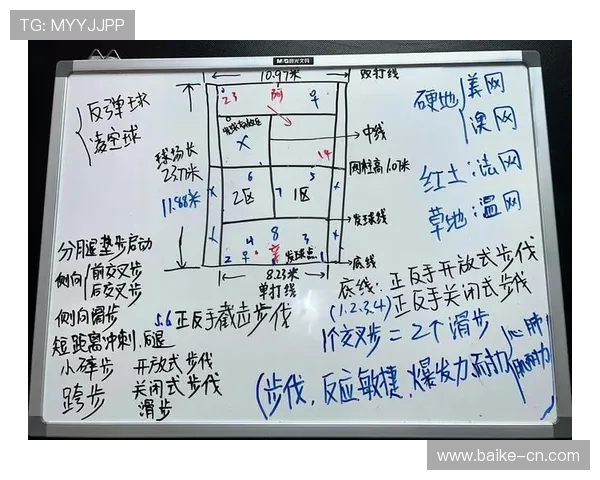 TG: MYYJJPP
M&G 晨光文具
10.97米
双打线
反弹球
凌空球
23
阿
平
发球有效区
中线
X
14
球场长
23.77米
11.88米
网柱高1.07米
6
5
X
2区
7
1区
X
发球线
4
8
3
2
平
发球点
1
底线
8.23米
单打线
硬地
美网
澳网
红土:法网
草地:温网
分腿垫步启动
侧向
前交叉步
后交叉步
侧向滑步
短距离冲刺.后退
小碎步
开放式步伐
跨步
关闭式步伐
滑步
5.6正反手截击步伐
底线:正反手开放式步伐
(1.2.3.4)正反手关闭式步伐
1个交叉步=2个滑步
(步伐,反应敏捷,爆发力 耐力
心肺
肌耐力
www.baike-cn.com